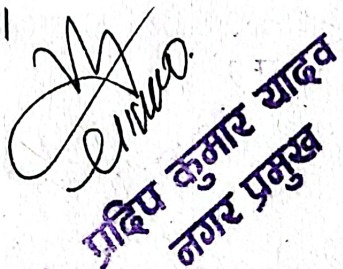 प्रदिप कुमार यादव
नगर प्रमुख